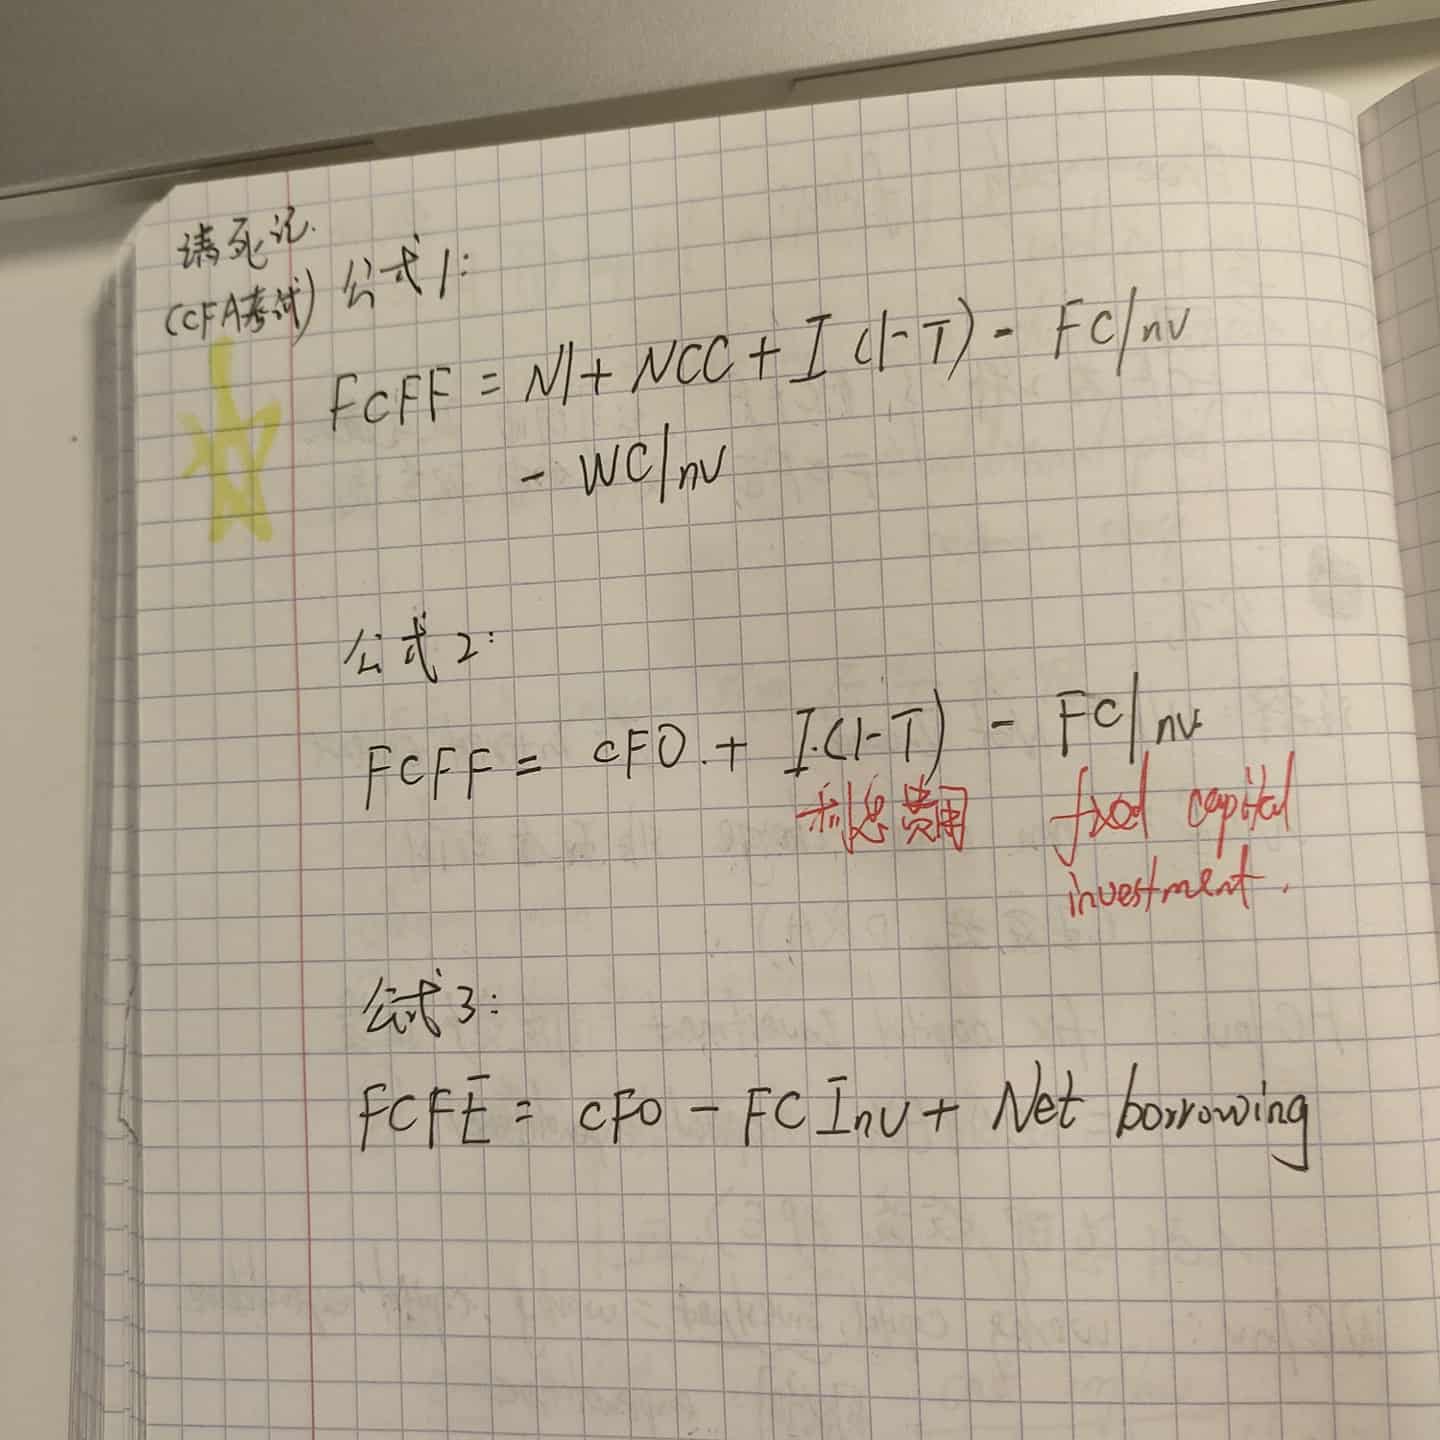 请死记.
(CFA考试) 公式1:
FCFF = NI + NCC + I (1-T) - FCInv
- WCInv
公式2:
FCFF = CFO. + I.(1-T) - FCInv.
利息费用 fixed capital
investment.
公式3:
FCFE = CFO - FCInv + Net borrowing